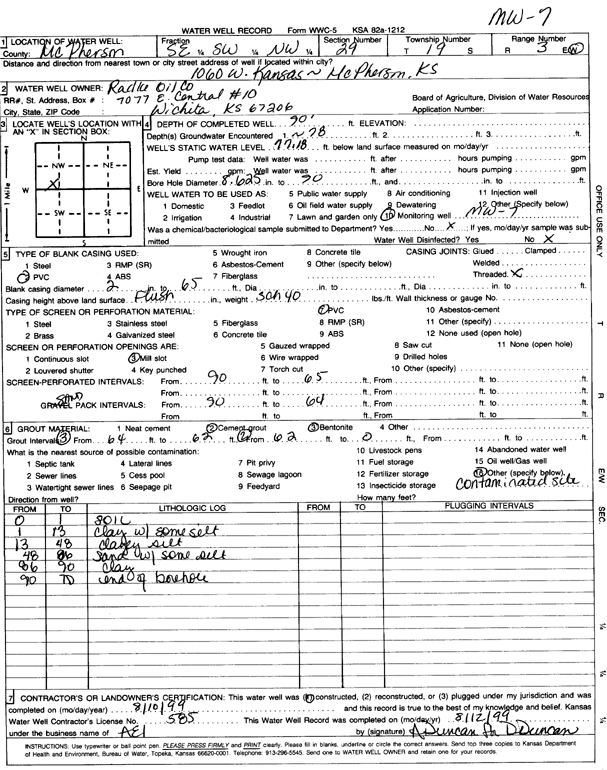 MW-7
WATER WELL RECORD Form WWC-5 KSA 82a-1212
1 LOCATION OF WATER WELL: Fraction Section Number Township Number Range Number
County: McPherson SE ¼ SW ¼ NW ¼ 29 T 19 S R 3 E/W
Distance and direction from nearest town or city street address of well if located within city?
1060 W. Kansas ~ McPherson, KS
2 WATER WELL OWNER: Radke Oil Co
RR#, St. Address, Box # : 7077 E. Central #10 Board of Agriculture, Division of Water Resources
City, State, ZIP Code : Wichita, KS 67206 Application Number:
3 LOCATE WELL'S LOCATION WITH AN "X" IN SECTION BOX:
N
NW NE
W X E
SW SE
S
1 Mile
4 DEPTH OF COMPLETED WELL 90' ft. ELEVATION:
Depth(s) Groundwater Encountered 1. ~78 ft. 2. ft. 3. ft.
WELL'S STATIC WATER LEVEL 77.18 ft. below land surface measured on mo/day/yr
Pump test data: Well water was ft. after hours pumping gpm
Est. Yield gpm: Well water was ft. after hours pumping gpm
Bore Hole Diameter 8.625 in. to 90 ft., and in. to ft.
WELL WATER TO BE USED AS: 5 Public water supply 8 Air conditioning 11 Injection well
1 Domestic 3 Feedlot 6 Oil field water supply 9 Dewatering 12 Other (Specify below)
2 Irrigation 4 Industrial 7 Lawn and garden only 10 Monitoring well MW-7
Was a chemical/bacteriological sample submitted to Department? Yes No X ; If yes, mo/day/yr sample was submitted
Water Well Disinfected? Yes No X
5 TYPE OF BLANK CASING USED: 5 Wrought iron 8 Concrete tile CASING JOINTS: Glued Clamped
1 Steel 3 RMP (SR) 6 Asbestos-Cement 9 Other (specify below) Welded
2 PVC 4 ABS 7 Fiberglass Threaded X
Blank casing diameter 2 in. to 65 ft., Dia in. to ft., Dia in. to ft.
Casing height above land surface Flush in., weight Sch 40 lbs./ft. Wall thickness or gauge No.
TYPE OF SCREEN OR PERFORATION MATERIAL: 7 PVC 10 Asbestos-cement
1 Steel 3 Stainless steel 5 Fiberglass 8 RMP (SR) 11 Other (specify)
2 Brass 4 Galvanized steel 6 Concrete tile 9 ABS 12 None used (open hole)
SCREEN OR PERFORATION OPENINGS ARE: 5 Gauzed wrapped 8 Saw cut 11 None (open hole)
1 Continuous slot 3 Mill slot 6 Wire wrapped 9 Drilled holes
2 Louvered shutter 4 Key punched 7 Torch cut 10 Other (specify)
SCREEN-PERFORATED INTERVALS: From 90 ft. to 65 ft., From ft. to ft.
From ft. to ft., From ft. to ft.
SAND GRAVEL PACK INTERVALS: From 90 ft. to 64 ft., From ft. to ft.
From ft. to ft., From ft. to ft.
6 GROUT MATERIAL: 1 Neat cement 2 Cement grout 3 Bentonite 4 Other
Grout Intervals 3 From 64 ft. to 62 ft., 2 From 62 ft. to 0 ft., From ft. to ft.
What is the nearest source of possible contamination: 10 Livestock pens 14 Abandoned water well
1 Septic tank 4 Lateral lines 7 Pit privy 11 Fuel storage 15 Oil well/Gas well
2 Sewer lines 5 Cess pool 8 Sewage lagoon 12 Fertilizer storage 16 Other (specify below)
3 Watertight sewer lines 6 Seepage pit 9 Feedyard 13 Insecticide storage contaminated site
Direction from well? How many feet?
FROM TO LITHOLOGIC LOG FROM TO PLUGGING INTERVALS
0 1 soil
1 13 clay w/ some silt
13 48 clayey silt
48 86 sand w/ some silt
86 90 clay
90 TD end of borehole
7 CONTRACTOR'S OR LANDOWNER'S CERTIFICATION: This water well was (1) constructed, (2) reconstructed, or (3) plugged under my jurisdiction and was
completed on (mo/day/year) 8/10/99 and this record is true to the best of my knowledge and belief. Kansas
Water Well Contractor's License No. 585 This Water Well Record was completed on (mo/day/yr) 8/12/99
under the business name of AEI by (signature) A Duncan for D Duncan
INSTRUCTIONS: Use typewriter or ball point pen. PLEASE PRESS FIRMLY and PRINT clearly. Please fill in blanks, underline or circle the correct answers. Send top three copies to Kansas Department
of Health and Environment, Bureau of Water, Topeka, Kansas 66620-0001. Telephone: 913-296-5545. Send one to WATER WELL OWNER and retain one for your records.
OFFICE USE ONLY
T
R
E/W
SEC.
¼
¼
¼